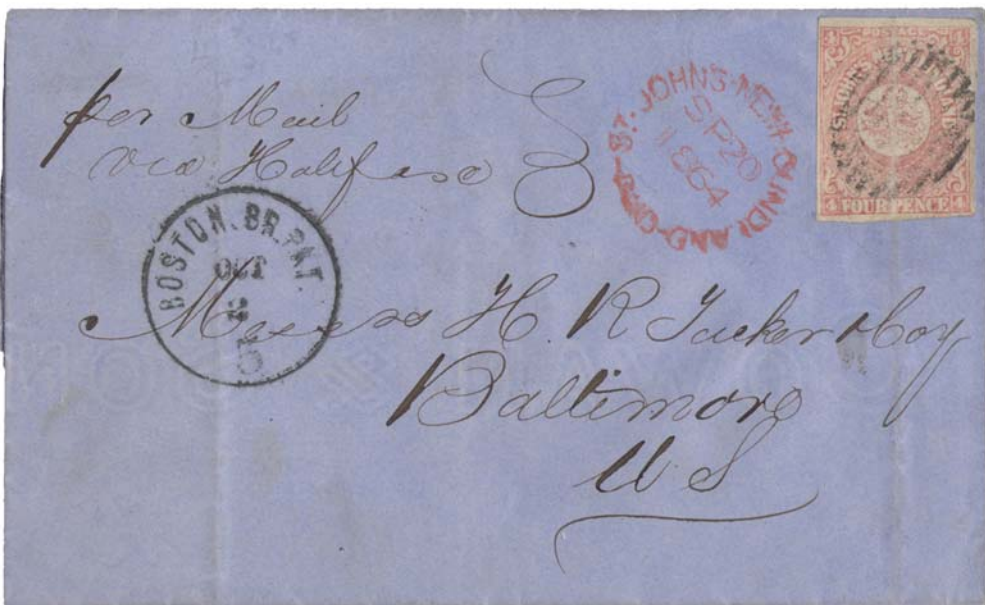 per Mail
via Halifax
ST. JOHN'S NEWFOUNDLAND
SP 20
1864
POSTAGE
FOUR PENCE
4
4
BOSTON. BR. PKT.
OCT
5
Messrs H. R Tucker & Coy
Baltimore
U. S